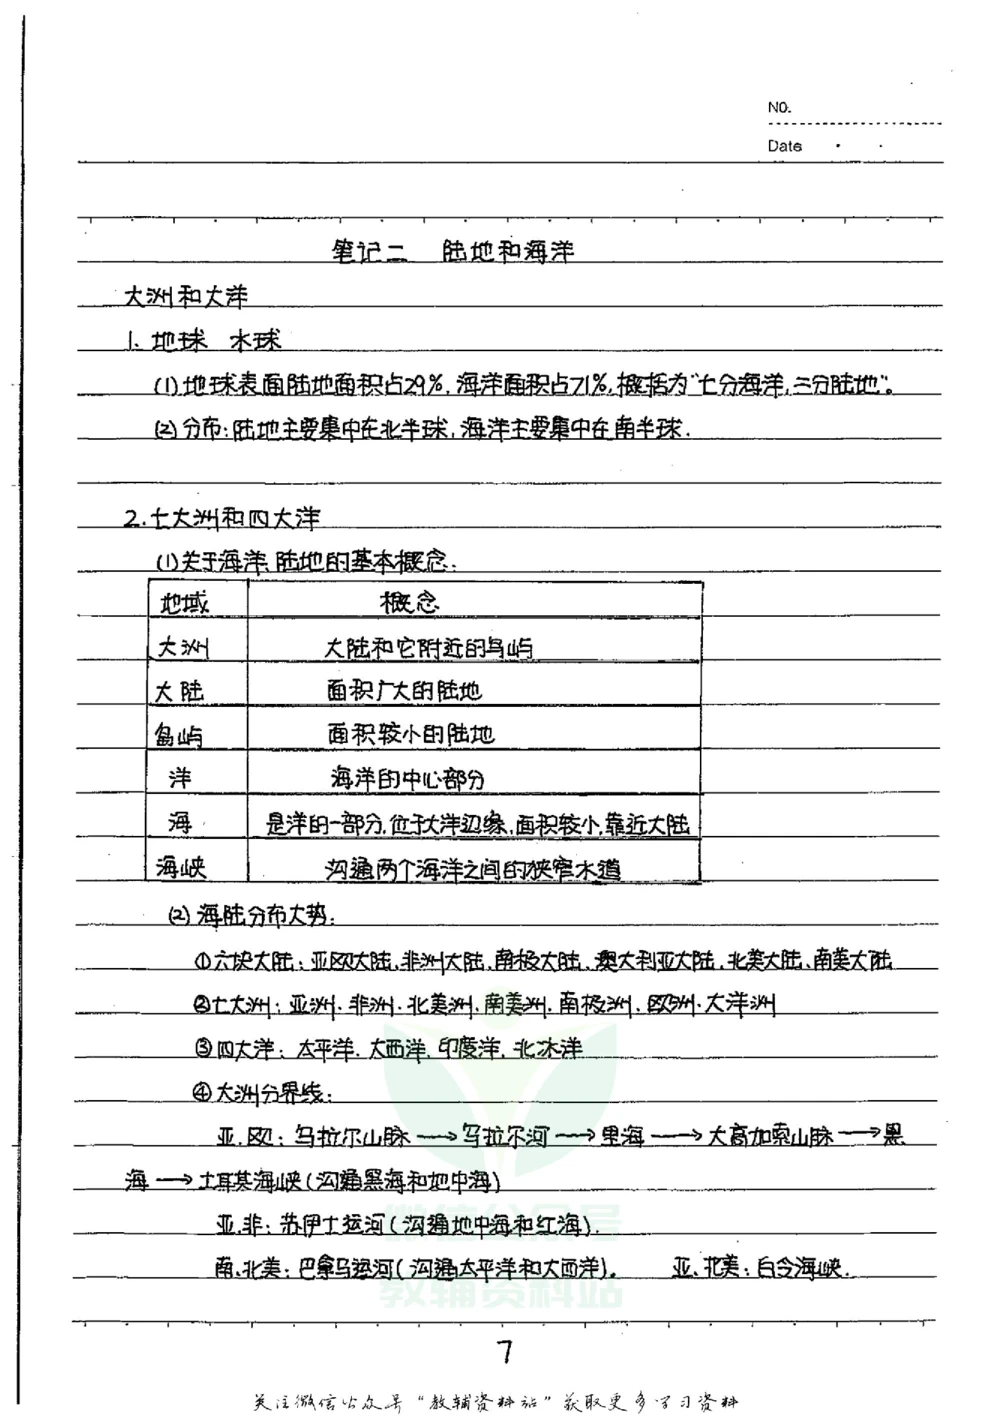 NO.
Date
笔记二 陆地和海洋
大洲和大洋
1. 地球 水球
(1)地球表面陆地面积占29%,海洋面积占71%,概括为"七分海洋,三分陆地"。
(2)分布:陆地主要集中在北半球,海洋主要集中在南半球.
2.七大洲和四大洋
(1)关于海洋、陆地的基本概念.
地域 概念
大洲 大陆和它附近的岛屿
大陆 面积广大的陆地
岛屿 面积较小的陆地
洋 海洋的中心部分
海 是洋的一部分,位于大洋边缘,面积较小,靠近大陆
海峡 沟通两个海洋之间的狭窄水道
(2)海陆分布大势:
①六块大陆:亚欧大陆、非洲大陆、南极大陆、澳大利亚大陆、北美大陆、南美大陆
②七大洲:亚洲、非洲、北美洲、南美洲、南极洲、欧洲、大洋洲
③四大洋:太平洋、大西洋、印度洋、北冰洋
④大洲分界线:
亚、欧:乌拉尔山脉→乌拉尔河→里海→大高加索山脉→黑
海→土耳其海峡(沟通黑海和地中海)
亚、非:苏伊士运河(沟通地中海和红海).
南、北美:巴拿马运河(沟通太平洋和大西洋)。 亚、北美:白令海峡.
微信公众号
教辅资料站
7
关注微信公众号"教辅资料站"获取更多学习资料